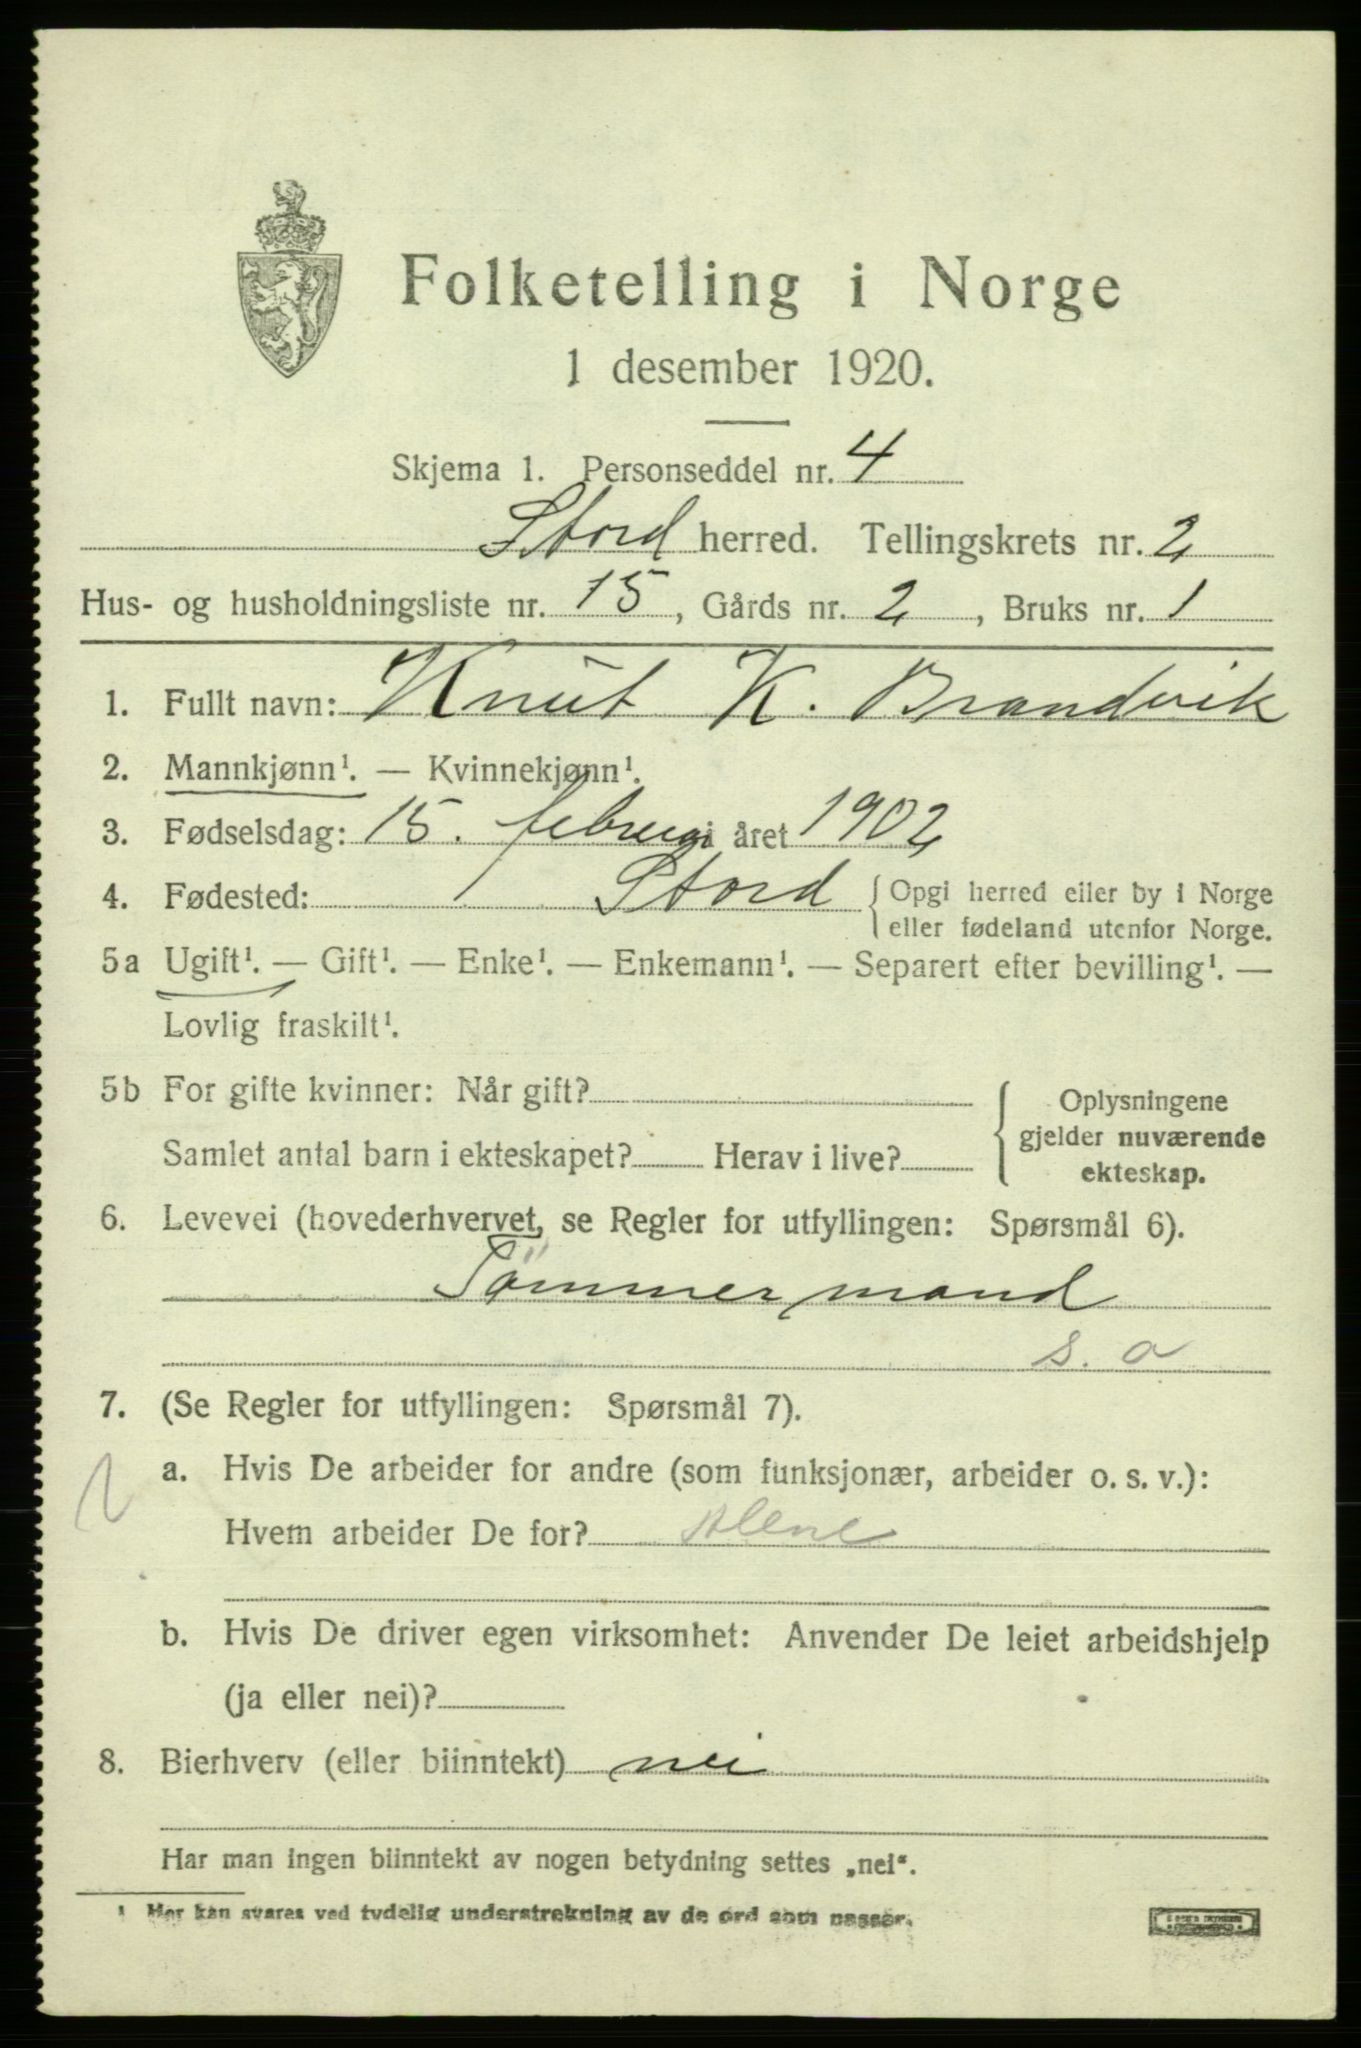 Folketelling i Norge
1 desember 1920.
Skjema 1. Personseddel nr. 4
Stord herred. Tellingskrets nr. 2
Hus- og husholdningsliste nr. 15, Gårds nr. 2, Bruks nr. 1
1. Fullt navn: Knut K. Brandvik
2. Mannkjønn¹. — Kvinnekjønn¹.
3. Fødselsdag: 15. februar i året 1902
4. Fødested: Stord {Opgi herred eller by i Norge
eller fødeland utenfor Norge.
5a Ugift¹. — Gift¹. — Enke¹. — Enkemann¹. — Separert efter bevilling¹. —
Lovlig fraskilt¹.
5b For gifte kvinner: Når gift?
Samlet antal barn i ekteskapet? Herav i live?
{Oplysningene
gjelder nuværende
ekteskap.
6. Levevei (hovederhvervet, se Regler for utfyllingen: Spørsmål 6).
Tömmermand
s. a
7. (Se Regler for utfyllingen: Spørsmål 7).
a. Hvis De arbeider for andre (som funksjonær, arbeider o. s. v.):
Hvem arbeider De for? Alene
b. Hvis De driver egen virksomhet: Anvender De leiet arbeidshjelp
(ja eller nei)?
8. Bierhverv (eller biinntekt) nei
Har man ingen biinntekt av nogen betydning settes „nei“.
¹ Her kan svares ved tydelig understrekning av de ord som passer.